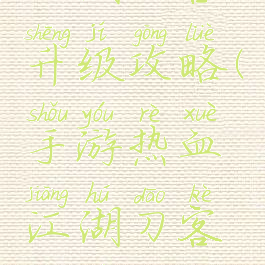 shēng jí gōng lüè
升级攻略(
shǒu yóu rè xuè
手游热血
jiāng hú dāo kè
江湖刀客